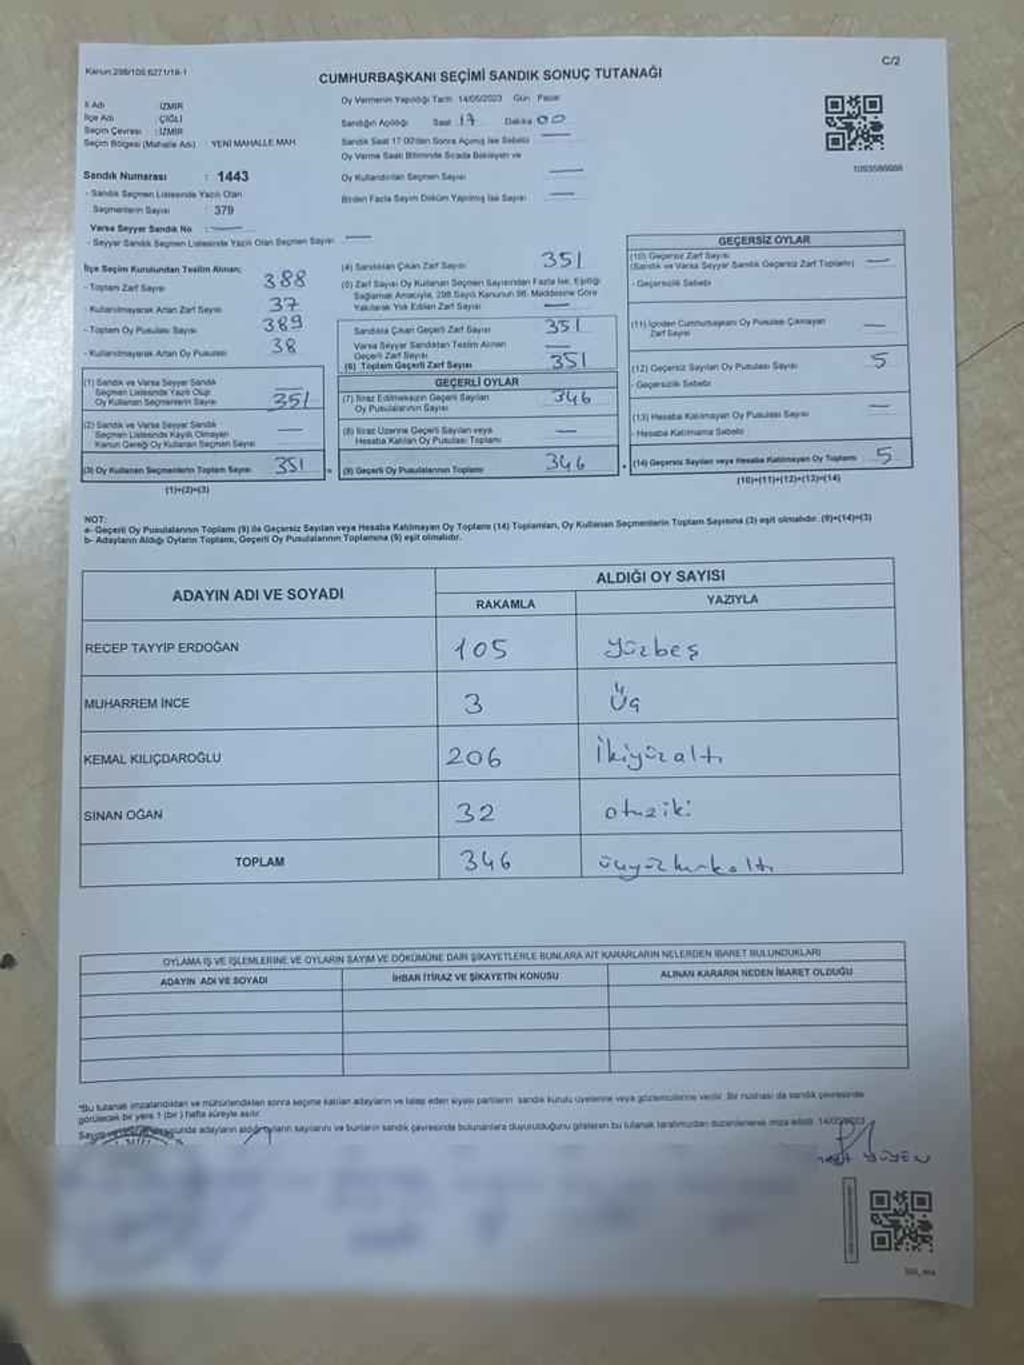 Kanun:298/105;6271/18-1
C/2
CUMHURBAŞKANI SEÇİMİ SANDIK SONUÇ TUTANAĞI
İl Adı İZMİR
İlçe Adı ÇİĞLİ
Seçim Çevresi : İZMİR
Seçim Bölgesi (Mahalle Adı) : YENİ MAHALLE MAH.
Sandık Numarası : 1443
- Sandık Seçmen Listesinde Yazılı Olan
Seçmenlerin Sayısı : 379
Varsa Seyyar Sandık No : —
- Seyyar Sandık Seçmen Listesinde Yazılı Olan Seçmen Sayısı —
Oy Vermenin Yapıldığı Tarih 14/05/2023 Gün Pazar
Sandığın Açılığı Saat 17 Dakika 00
Sandık Saat 17:00'den Sonra Açılmış İse Sebebi —
Oy Verme Saati Bitiminde Sırada Bekleyen ve
Oy Kullandırılan Seçmen Sayısı —
Birden Fazla Sayım Döküm Yapılmış İse Sayısı —
İlçe Seçim Kurulundan Teslim Alınan;
- Toplam Zarf Sayısı 388
- Kullanılmayarak Artan Zarf Sayısı 37
- Toplam Oy Pusulası Sayısı 389
- Kullanılmayarak Artan Oy Pusulası 38
(1) Sandık ve Varsa Seyyar Sandık
Seçmen Listesinde Yazılı Olup
Oy Kullanan Seçmenlerin Sayısı 351
(2) Sandık ve Varsa Seyyar Sandık
Seçmen Listesinde Kayıtlı Olmayan
Kanun Gereği Oy Kullanan Seçmen Sayısı —
(3) Oy Kullanan Seçmenlerin Toplam Sayısı 351
(1)+(2)=(3)
(4) Sandıktan Çıkan Zarf Sayısı 351
(5) Zarf Sayısı Oy Kullanan Seçmen Sayısından Fazla İse, Eşitliği
Sağlamak Amacıyla, 298 Sayılı Kanunun 98. Maddesine Göre
Yakılarak Yok Edilen Zarf Sayısı —
Sandıkta Çıkan Geçerli Zarf Sayısı 351
Varsa Seyyar Sandıktan Teslim Alınan
Geçerli Zarf Sayısı —
(6) Toplam Geçerli Zarf Sayısı 351
GEÇERLİ OYLAR
(7) İtiraz Edilmeksizin Geçerli Sayılan
Oy Pusulalarının Sayısı 346
(8) İtiraz Üzerine Geçerli Sayılan veya
Hesaba Katılan Oy Pusulası Toplamı —
(9) Geçerli Oy Pusulalarının Toplamı 346
GEÇERSİZ OYLAR
(10) Geçersiz Zarf Sayısı
(Sandık ve Varsa Seyyar Sandık Geçersiz Zarf Toplamı) —
- Geçersizlik Sebebi
(11) İçinden Cumhurbaşkanı Oy Pusulası Çıkmayan
Zarf Sayısı —
(12) Geçersiz Sayılan Oy Pusulası Sayısı 5
- Geçersizlik Sebebi
(13) Hesaba Katılmayan Oy Pusulası Sayısı —
- Hesaba Katılmama Sebebi
(14) Geçersiz Sayılan veya Hesaba Katılmayan Oy Toplamı 5
(10)+(11)+(12)+(13)=(14)
NOT:
a- Geçerli Oy Pusulalarının Toplamı (9) ile Geçersiz Sayılan veya Hesaba Katılmayan Oy Toplamı (14) Toplamları, Oy Kullanan Seçmenlerin Toplam Sayısına (3) eşit olmalıdır. (9)+(14)=(3)
b- Adayların Aldığı Oyların Toplamı, Geçerli Oy Pusulalarının Toplamına (9) eşit olmalıdır.
ADAYIN ADI VE SOYADI
ALDIĞI OY SAYISI
RAKAMLA YAZIYLA
RECEP TAYYİP ERDOĞAN 105 Yüzbeş
MUHARREM İNCE 3 Üç
KEMAL KILIÇDAROĞLU 206 İkiyüzaltı
SİNAN OĞAN 32 otuziki
TOPLAM 346 üçyüzkırkaltı
OYLAMA İŞ VE İŞLEMLERİNE VE OYLARIN SAYIM VE DÖKÜMÜNE DAİR ŞİKAYETLERLE BUNLARA AİT KARARLARIN NELERDEN İBARET BULUNDUKLARI
ADAYIN ADI VE SOYADI İHBAR İTİRAZ VE ŞİKAYETİN KONUSU ALINAN KARARIN NEDEN İBARET OLDUĞU
"Bu tutanak imzalandıktan ve mühürlendikten sonra seçime katılan adayların ve talep eden siyasi partilerin sandık kurulu üyelerine veya gözlemcilerine verilir. Bir nüshası da sandık çevresinde
görülecek bir yere 1 (bir ) hafta süreyle asılır.
adayların aldığı oyların sayılarını ve bunların sandık çevresinde bulunanlara duyurulduğunu gösteren bu tutanak tarafımızdan düzenlenerek imza edildi. 14/05/2023